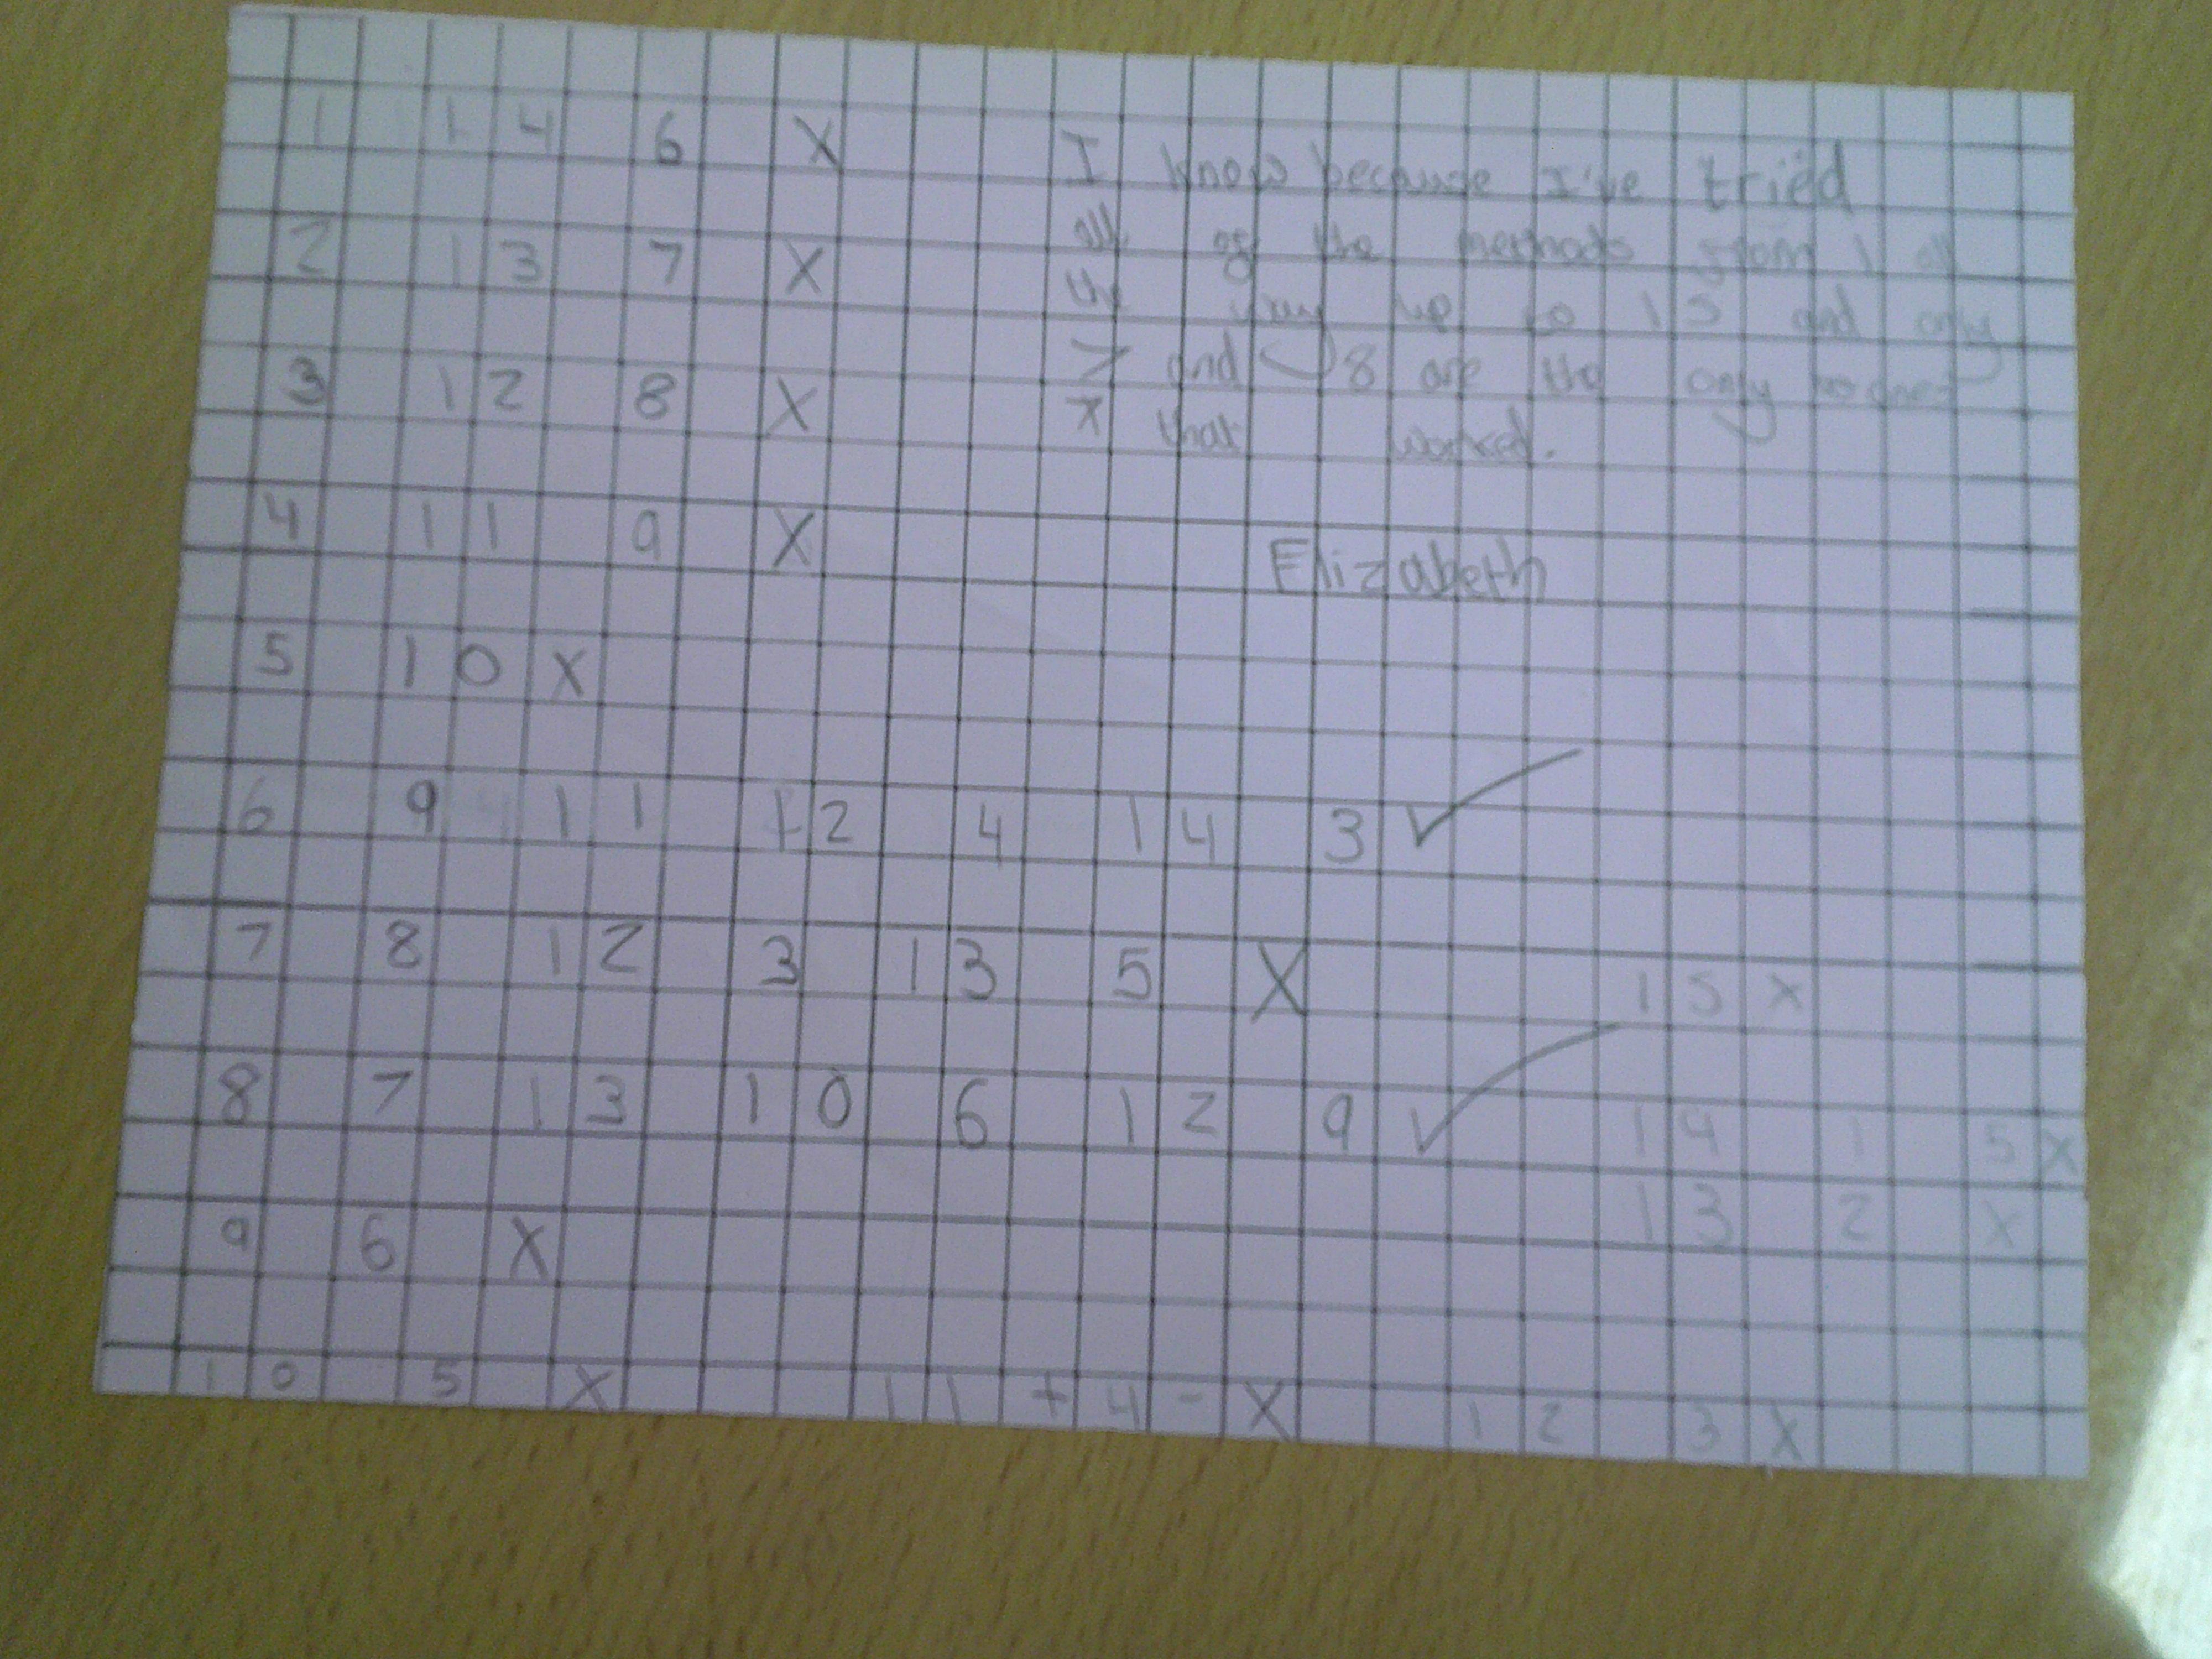 1 14 6 X
2 13 7 X
3 12 8 X
4 11 9 X
5 10 X
6 9 11 12 4 14 3 ✓
7 8 12 3 13 5 X
8 7 13 10 6 12 9 ✓
9 6 X
10 5 X 11 + 4 - X 12 3 X
I know because I've tried
all of the methods from 1 all
the way up to 15 and only
7 and 8 are the only
that worked.
Elizabeth
15 X
14 1 5 X
13 2 X